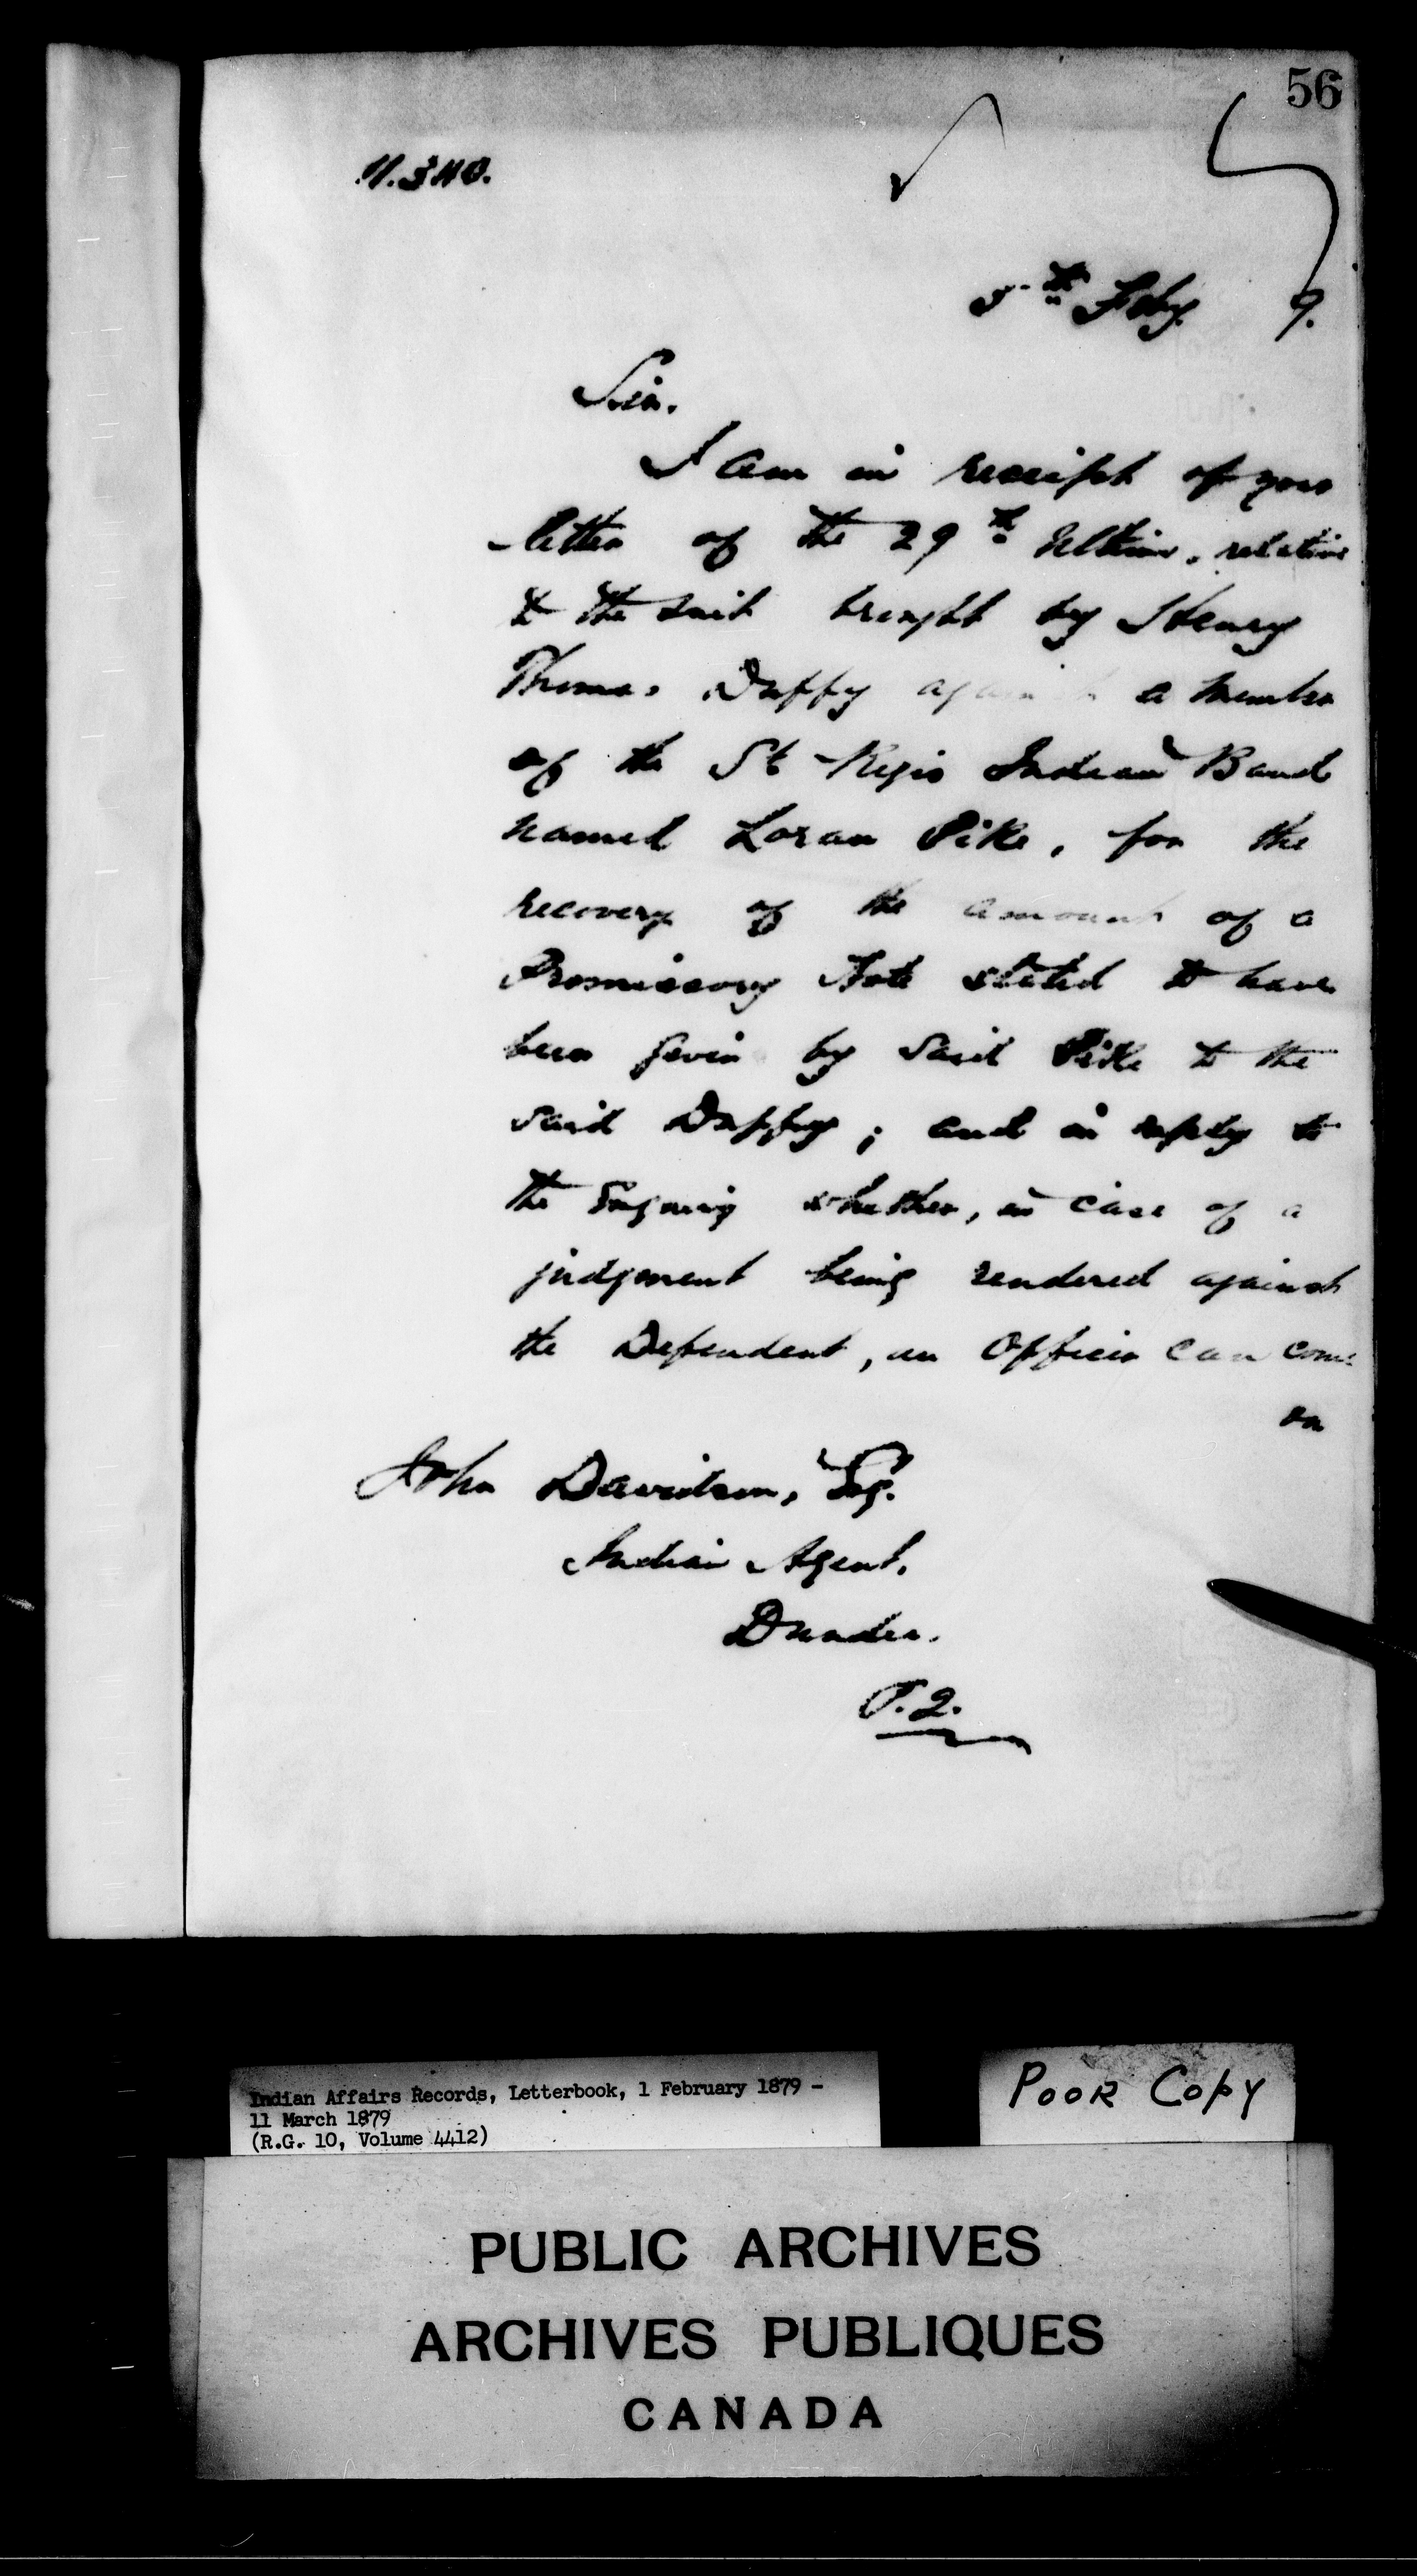 56
11.340.
5th Feby. 9.
Sir.
I am in receipt of your
letter of the 29th Ultimo, relative
to the suit brought by Henry
Thomas Duffy against a member
of the St Regis Indian Band
named Loran Pike, for the
recovery of the amount of a
Promissory Note stated to have
been given by said Pike to the
said Duffy; and in reply to
the Enquiry whether, in case of a
judgment being rendered against
the Defendent, an Officer can come
on
John Davidson, Esq.
Indian Agent.
Dundee.
P.Q.
Indian Affairs Records, Letterbook, 1 February 1879 -
11 March 1879
(R.G. 10, Volume 4412)
POOR COPY
PUBLIC ARCHIVES
ARCHIVES PUBLIQUES
CANADA